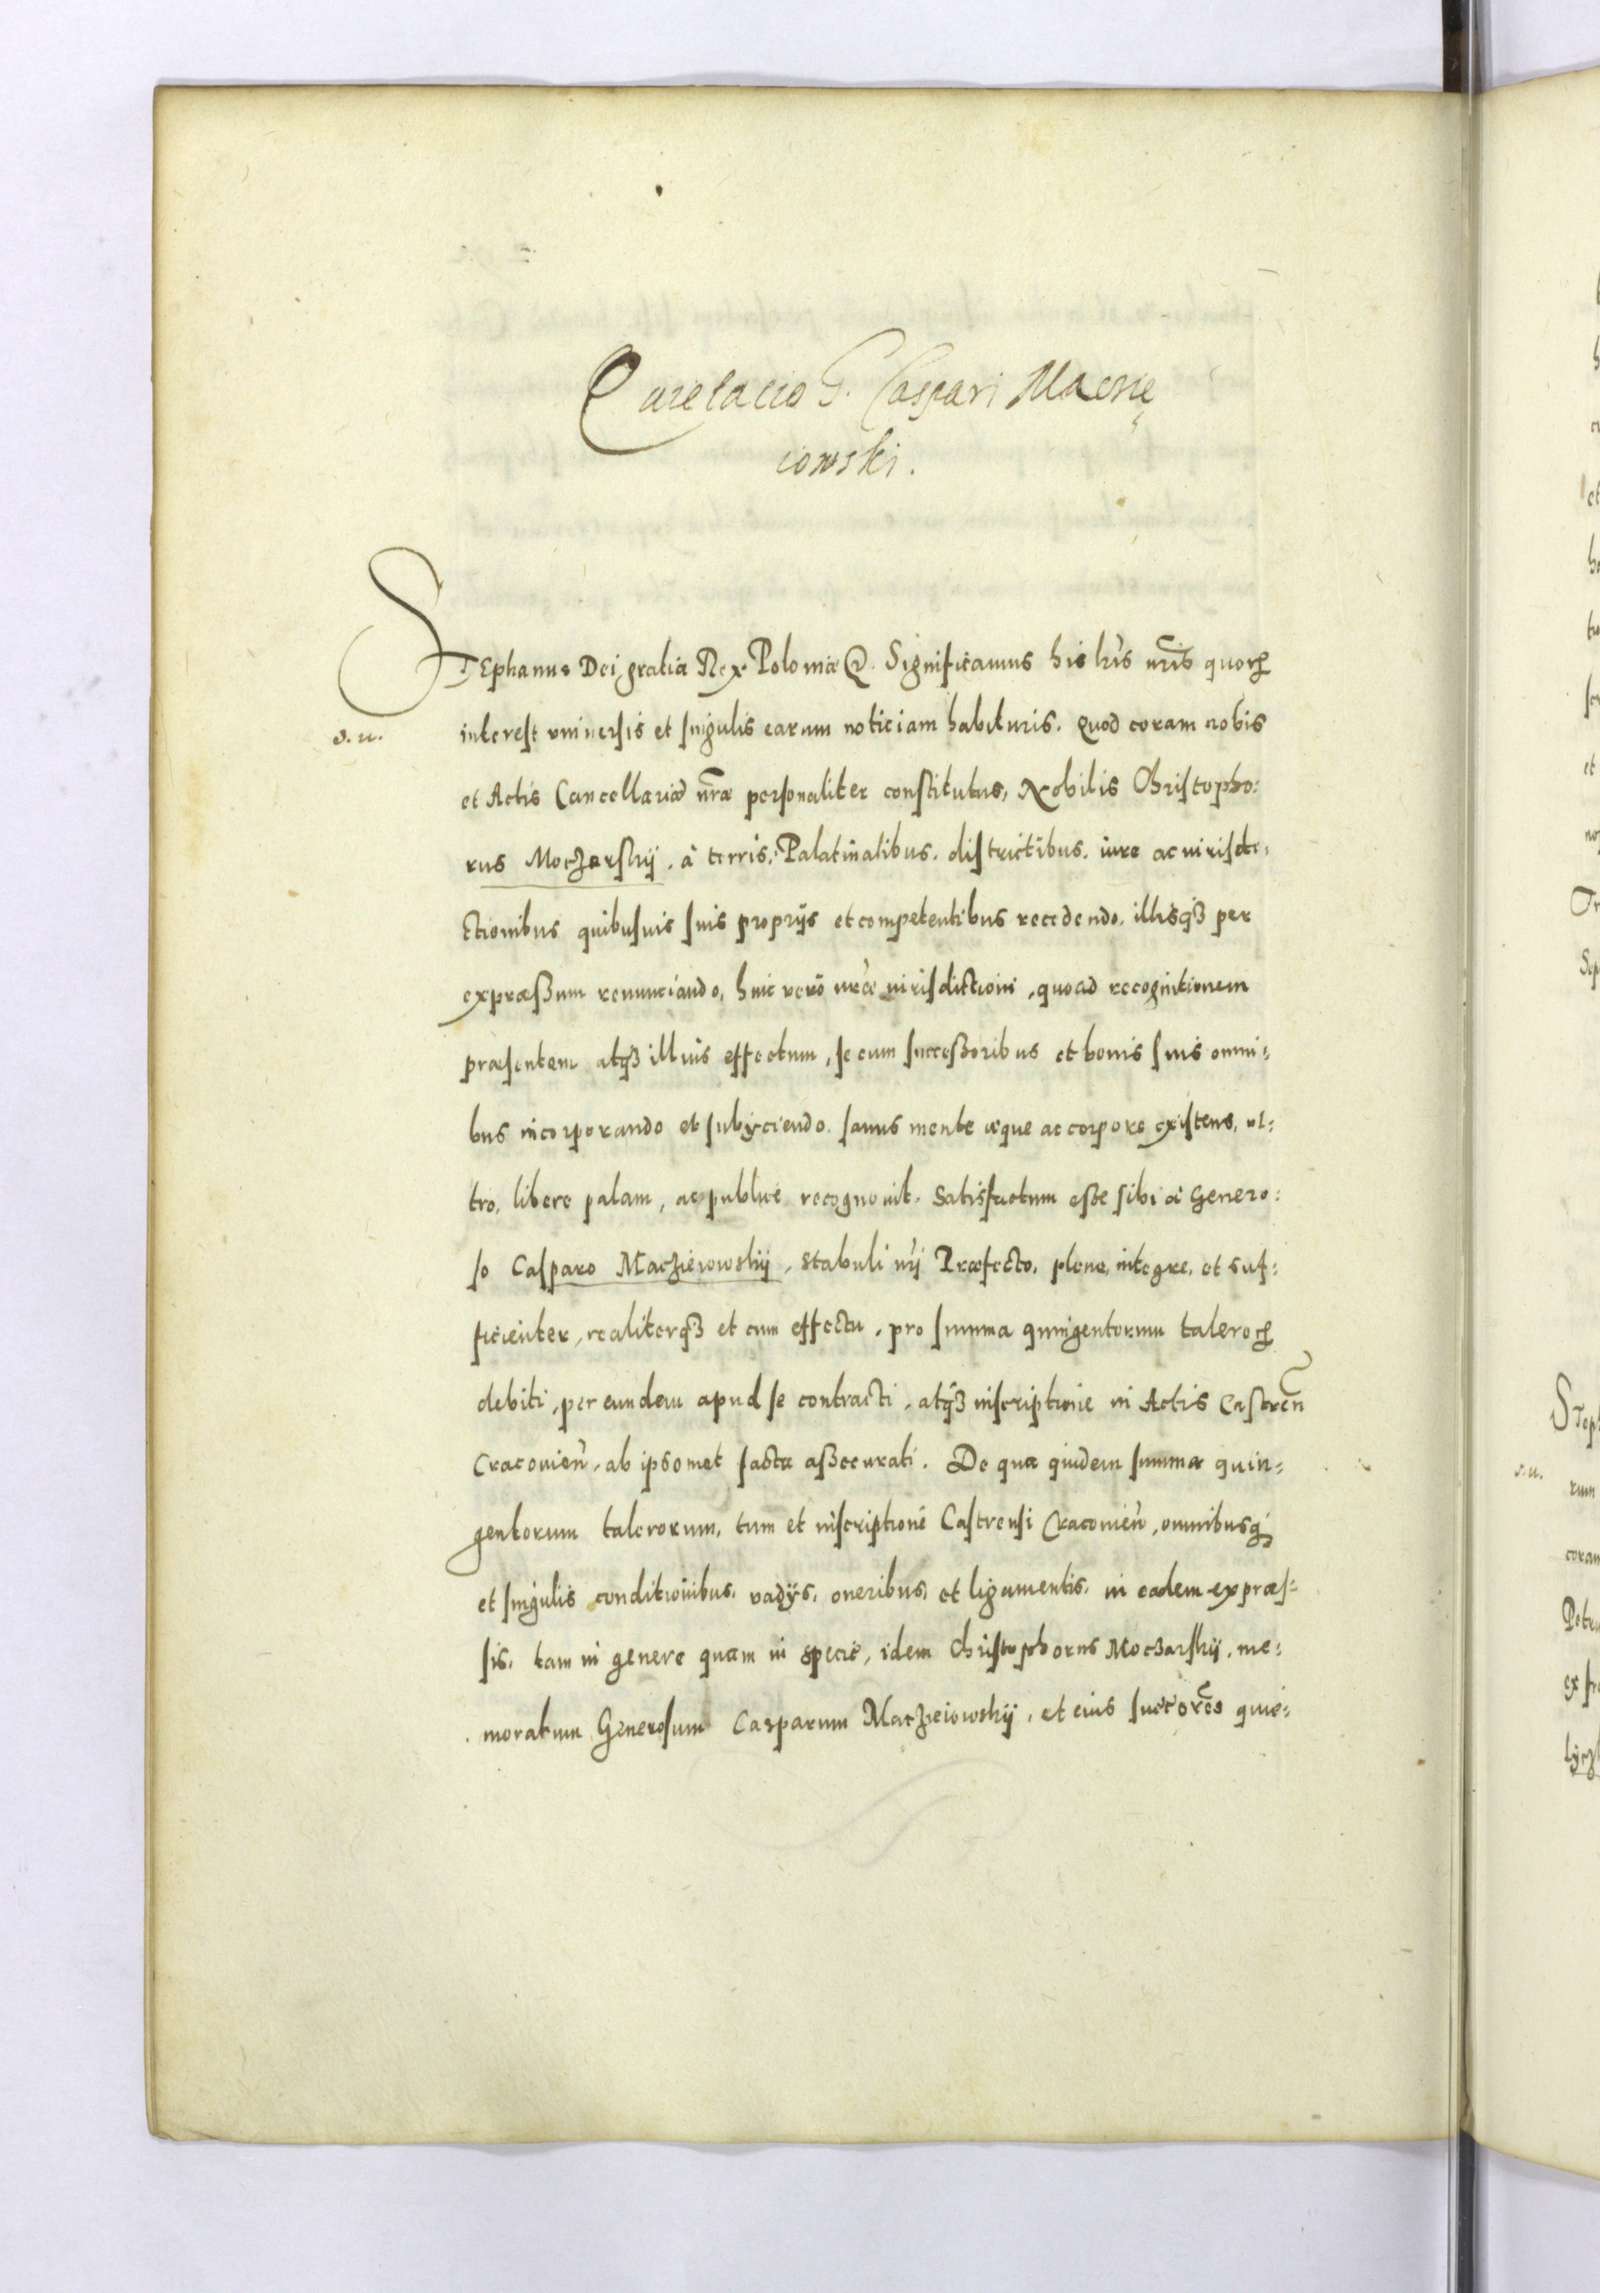 G. Caspari Maczie
iowski.
STEphanus Dei gratia Rex Poloniæ &. Significamus his lr̃is nr̃is quorꝝ
s. u.
interest vniuersis et singulis earum noticiam habituris. Quod coram nobis
et Actis Cancellariæ nr̃æ personaliter constitutus, Nobilis Christopho:
rus Moczarskÿ, à terris, Palatinatibus, districtibus, iure ac iurisdi:
ctionibus quibusuis suis proprÿs et competentibus recedendo, illisqꝫ per
expræssum renunciando, huic verò nr̃æ iurisdictioni, quoad recognitionem
præsentem atqꝫ illius effectum, se cum successoribus et bonis suis omni:
bus incorporando et subÿciendo. sanus mente æque ac corpore existens, vl:
tro, libere palam, ac publice recognouit. Satisfactum esse sibi à Genero:
so Casparo Maczieiowskÿ, stabuli nr̃i Præfecto, plene, integre, et suf:
ficienter, realiterqꝫ et cum effectu, pro summa quingentorum taleroꝝ
debiti, per eundem apud se contracti, atqꝫ inscriptione in Actis Castreñ
Cracouieñ, ab ipsomet facta assecurati. De qua quidem summa quin:
gentorum talerorum, tum et inscriptione Castrensi Cracouieñ, omnibusqꝫ
et singulis conditionibus, vadÿs, oneribus, et ligamentis, in eadem expræs:
sis, tam in genere quam in specie, idem Christophorus Moczarskÿ, me:
moratum Generosum Casparum Maczieiowskÿ, et eius succores̃ quie: